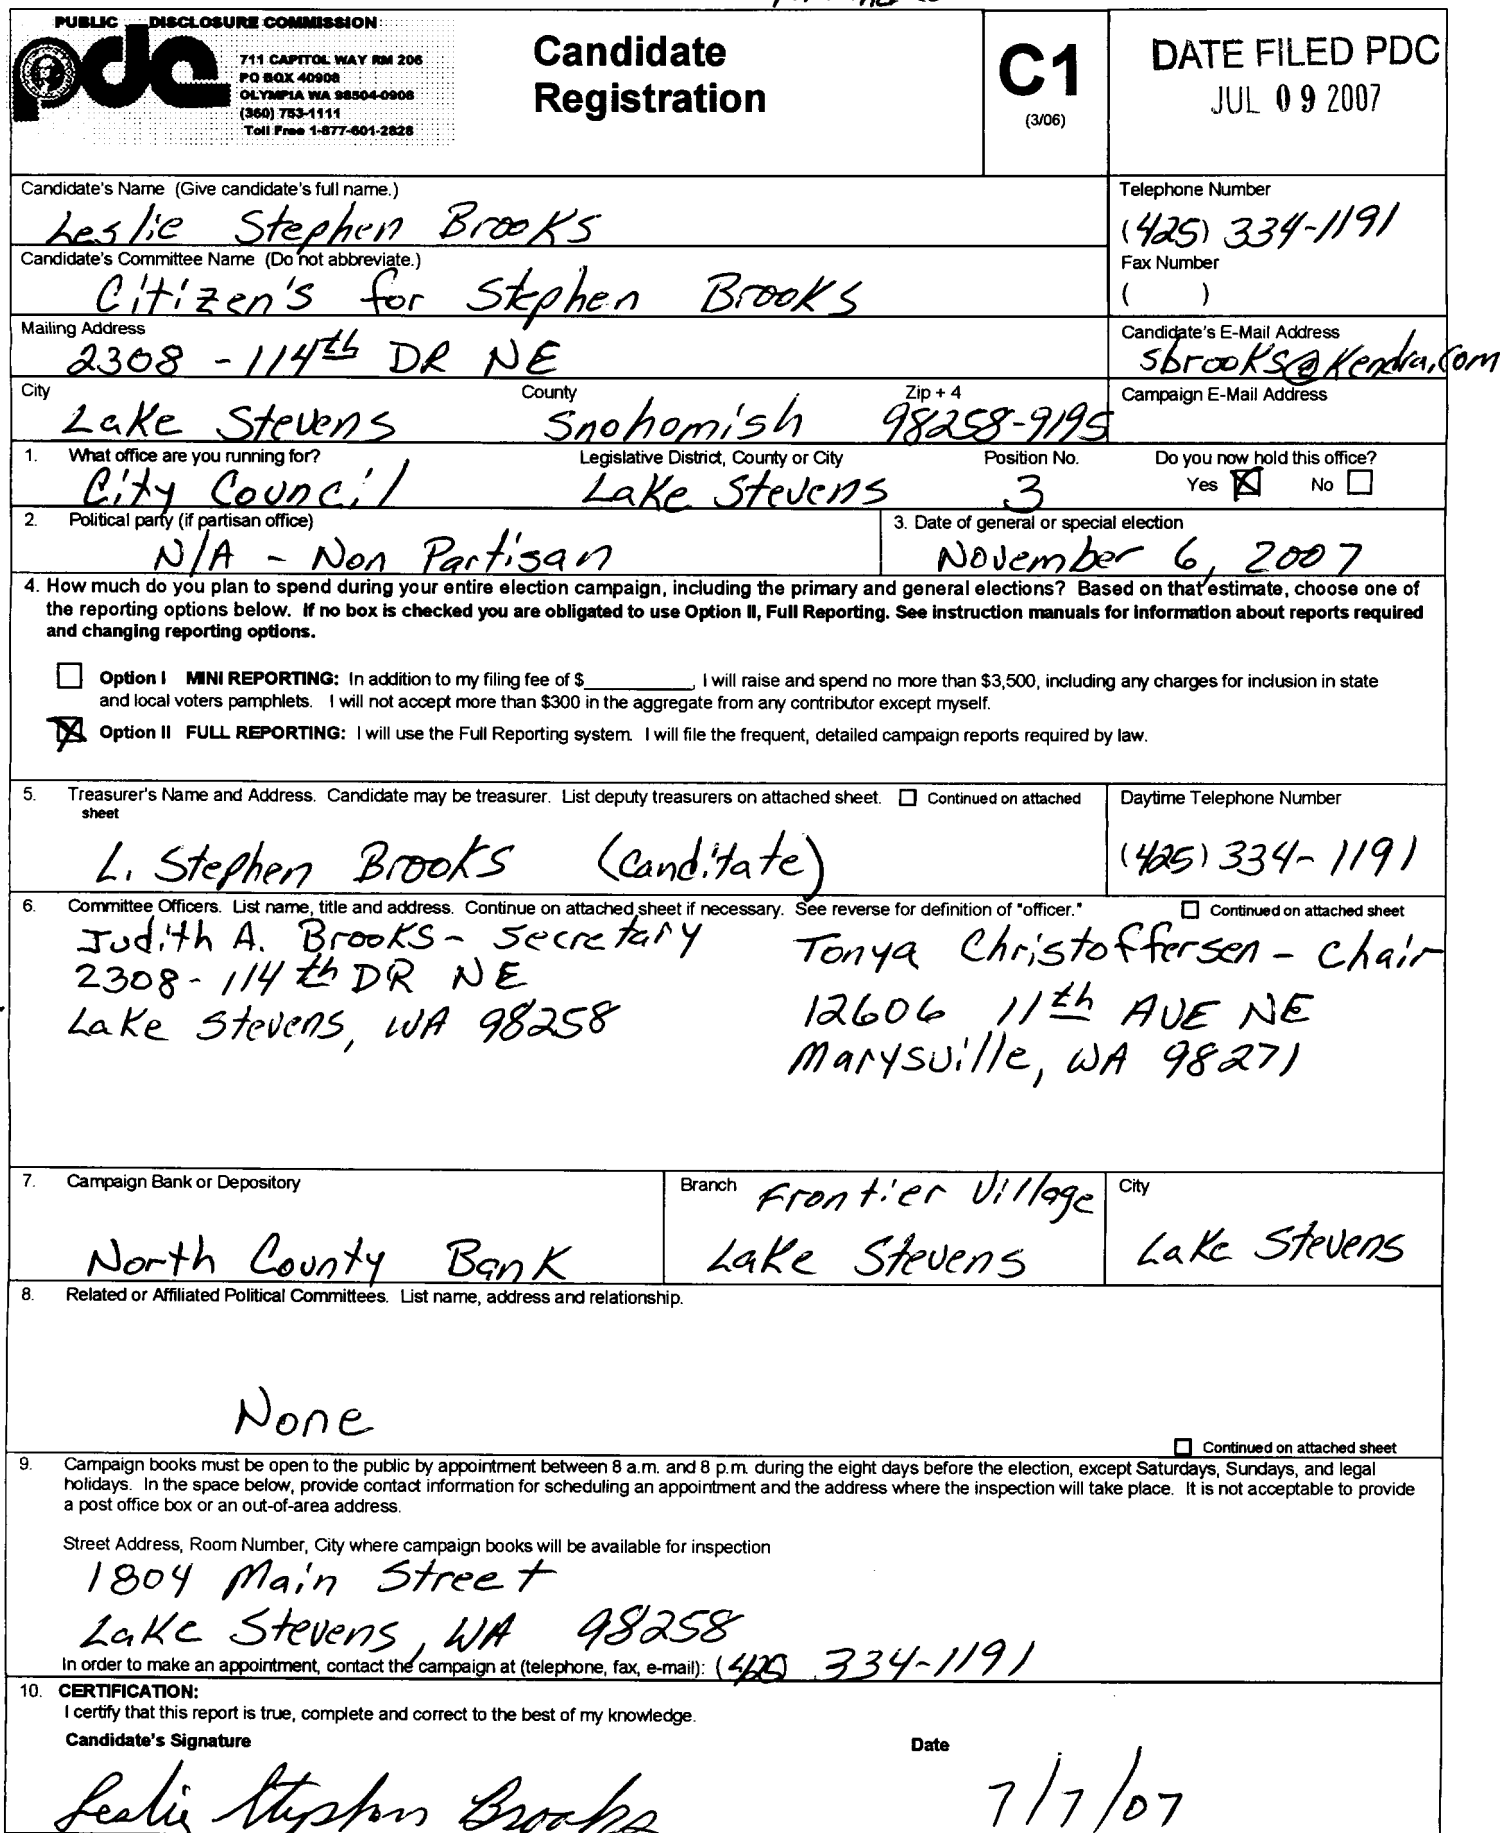 PUBLIC DISCLOSURE COMMISSION
pdc
711 CAPITOL WAY RM 206
PO BOX 40908
OLYMPIA WA 98504-0908
(360) 753-1111
Toll Free 1-877-601-2828
Candidate
Registration
C1
(3/06)
DATE FILED PDC
JUL 09 2007
Candidate's Name (Give candidate's full name.)
Leslie Stephen Brooks
Telephone Number
(425) 334-1191
Candidate's Committee Name (Do not abbreviate.)
Citizen's for Stephen Brooks
Fax Number
( )
Mailing Address
2308 - 114th DR NE
Candidate's E-Mail Address
sbrooks@Kendra.com
City
Lake Stevens
County
Snohomish
Zip + 4
98258-9195
Campaign E-Mail Address
1. What office are you running for?
City Council
Legislative District, County or City
Lake Stevens
Position No.
3
Do you now hold this office?
Yes No
2. Political party (if partisan office)
N/A - Non Partisan
3. Date of general or special election
November 6, 2007
4. How much do you plan to spend during your entire election campaign, including the primary and general elections? Based on that estimate, choose one of
the reporting options below. If no box is checked you are obligated to use Option II, Full Reporting. See instruction manuals for information about reports required
and changing reporting options.
Option I MINI REPORTING: In addition to my filing fee of $________, I will raise and spend no more than $3,500, including any charges for inclusion in state
and local voters pamphlets. I will not accept more than $300 in the aggregate from any contributor except myself.
Option II FULL REPORTING: I will use the Full Reporting system. I will file the frequent, detailed campaign reports required by law.
5. Treasurer's Name and Address. Candidate may be treasurer. List deputy treasurers on attached sheet. Continued on attached
sheet
L. Stephen Brooks (Canditate)
Daytime Telephone Number
(425) 334-1191
6. Committee Officers. List name, title and address. Continue on attached sheet if necessary. See reverse for definition of "officer." Continued on attached sheet
Judith A. Brooks - Secretary
2308 - 114th DR NE
Lake Stevens, WA 98258
Tonya Christoffersen - Chair
12606 11th AVE NE
Marysville, WA 98271
7. Campaign Bank or Depository
North County Bank
Branch Frontier Village
Lake Stevens
City
Lake Stevens
8. Related or Affiliated Political Committees. List name, address and relationship.
None
Continued on attached sheet
9. Campaign books must be open to the public by appointment between 8 a.m. and 8 p.m. during the eight days before the election, except Saturdays, Sundays, and legal
holidays. In the space below, provide contact information for scheduling an appointment and the address where the inspection will take place. It is not acceptable to provide
a post office box or an out-of-area address.
Street Address, Room Number, City where campaign books will be available for inspection
1804 Main Street
Lake Stevens, WA 98258
In order to make an appointment, contact the campaign at (telephone, fax, e-mail): (425) 334-1191
10. CERTIFICATION:
I certify that this report is true, complete and correct to the best of my knowledge.
Candidate's Signature
Leslie Stephen Brooks
Date
7/7/07